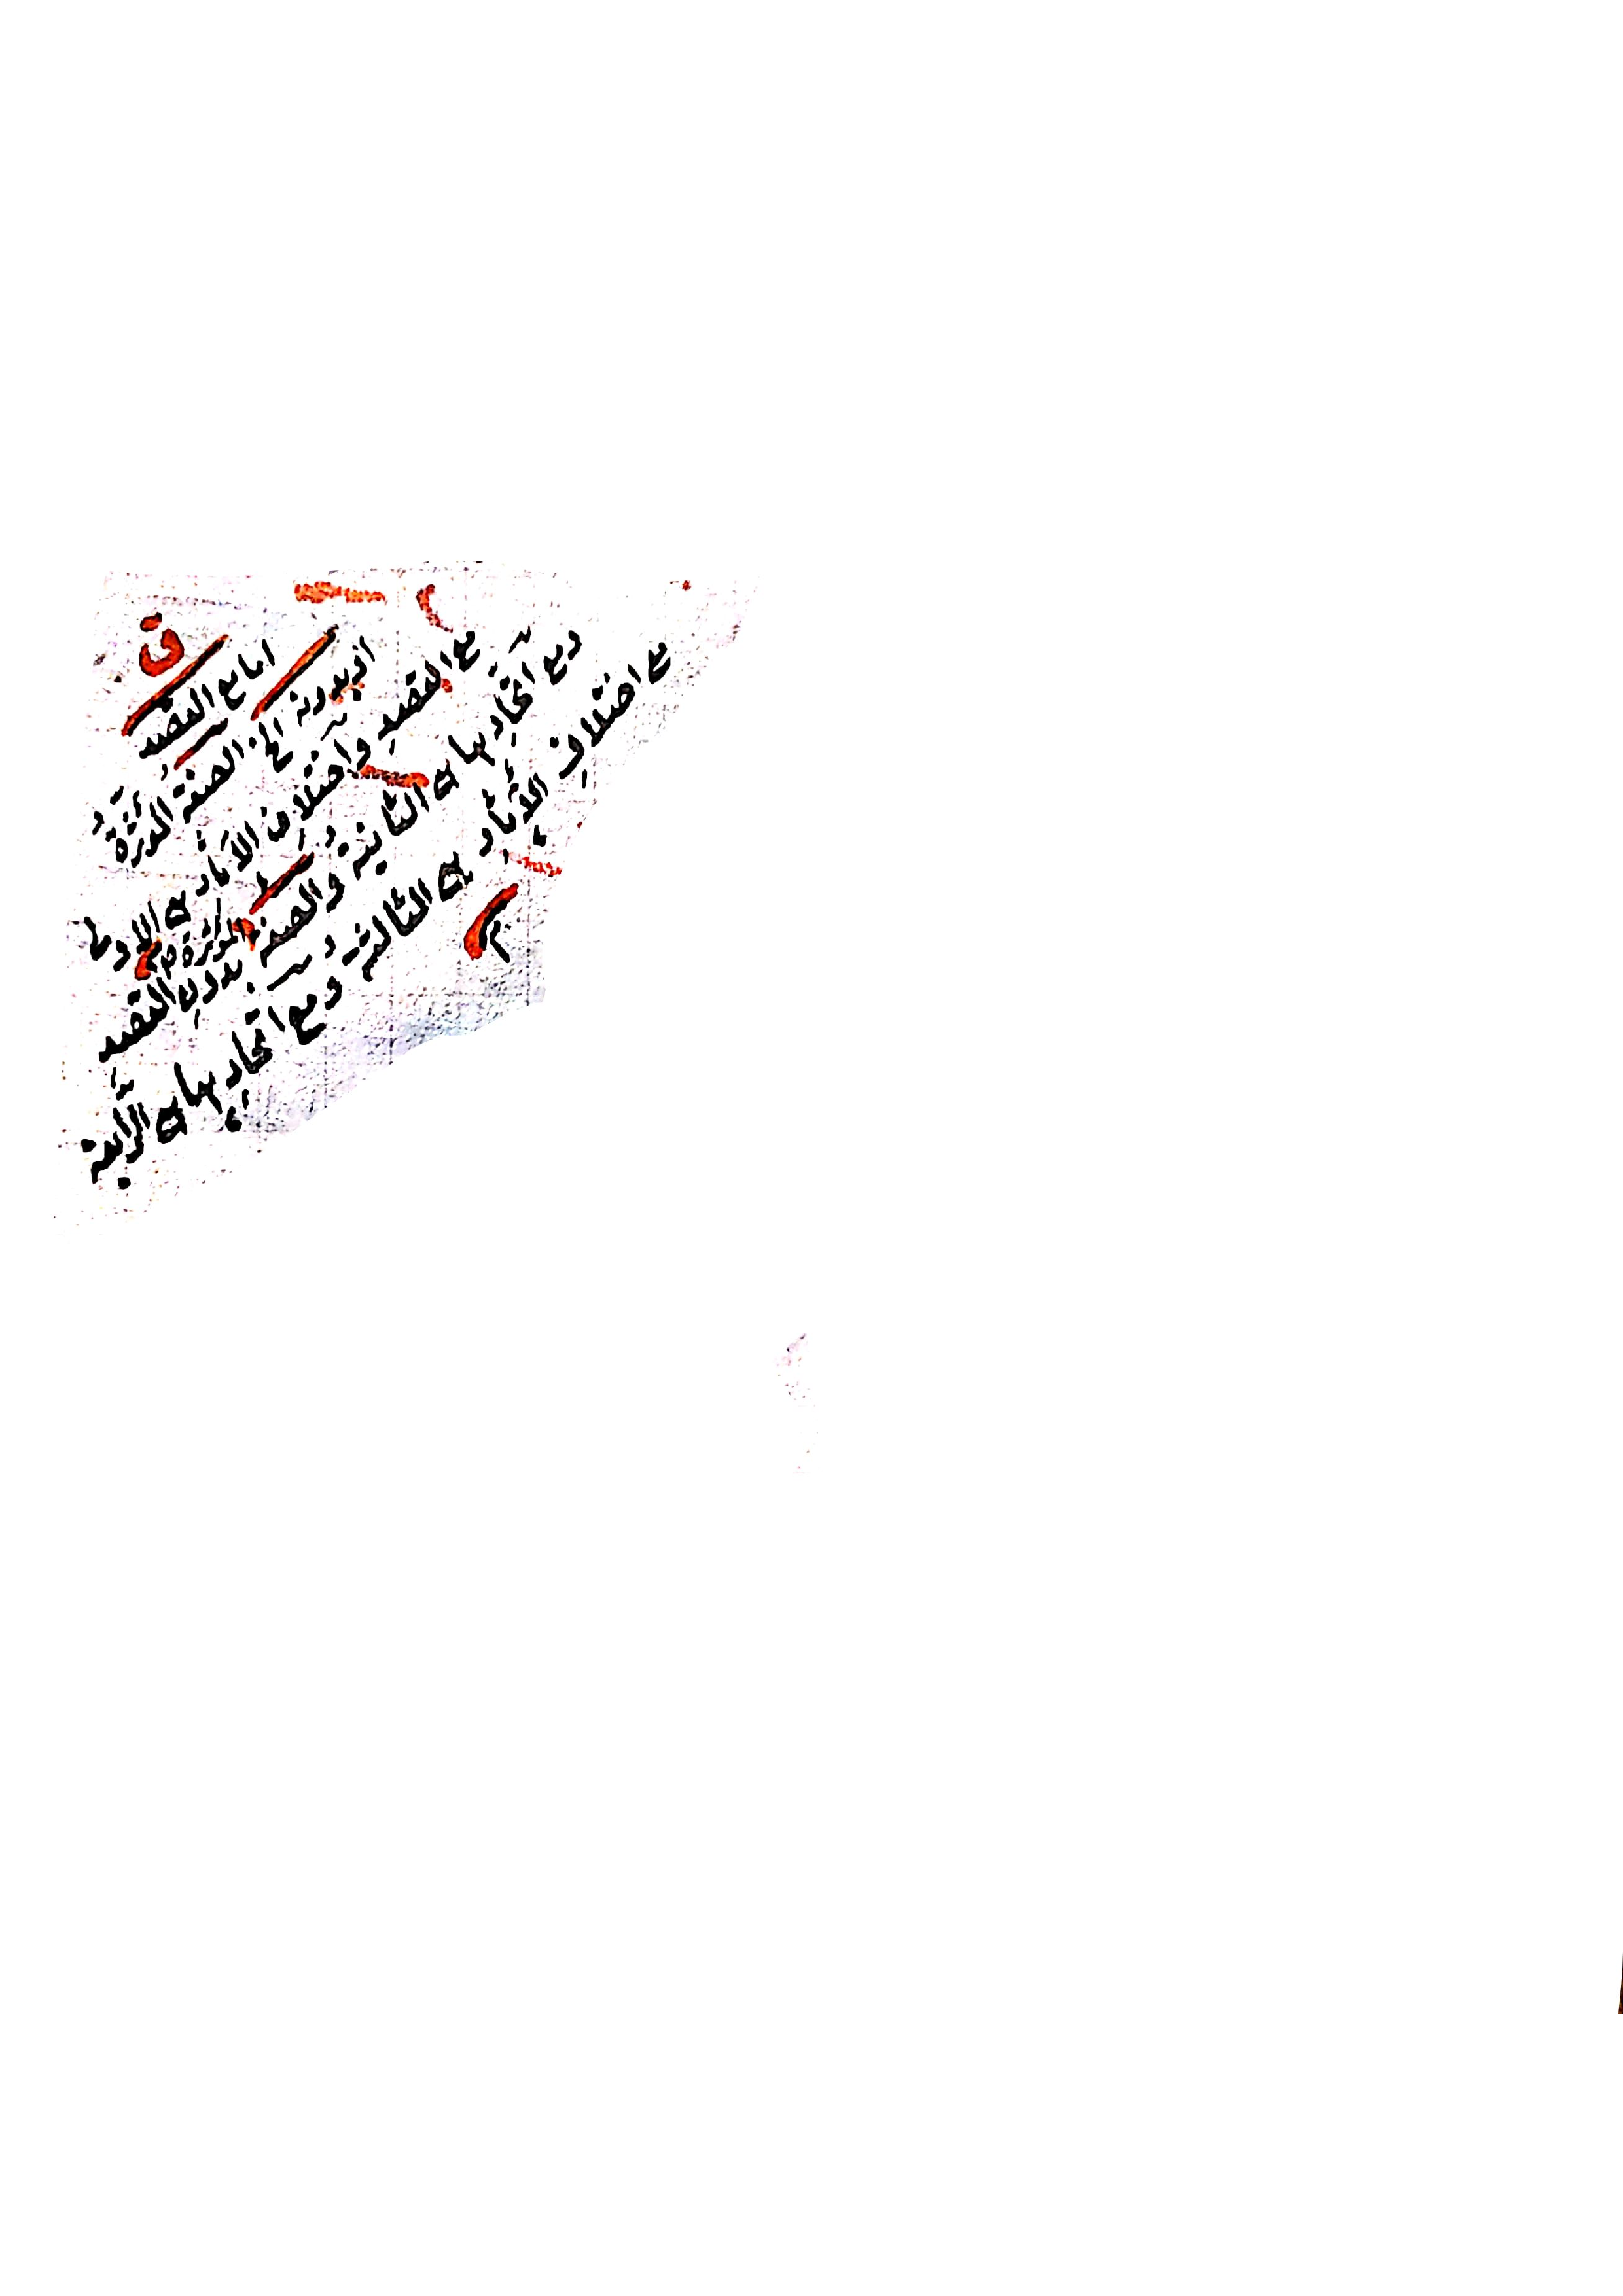 ق
اما مع القصد
او بدونه الخ الصفة المؤثرة
مع القصد واختلاف الآثار هي الاولى
ومع اتحادها هي الثانية والصفة المؤثرة بدون القصد
مع اختلاف الآثار هي الثالثة ومع اتحادها هي الرابعة
م